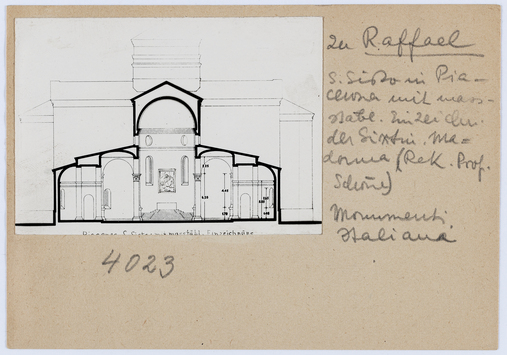 zu Raffael
S. Sisto in Pia-
cenza mit mass-
stäbl. Einzeichn.
der Sixtin. Ma-
donna (Rek. Prof.
Schöne)
Monumenti
Italiana
Piacenza S. Sisto m. massstäbl. Einzeichnung
4023